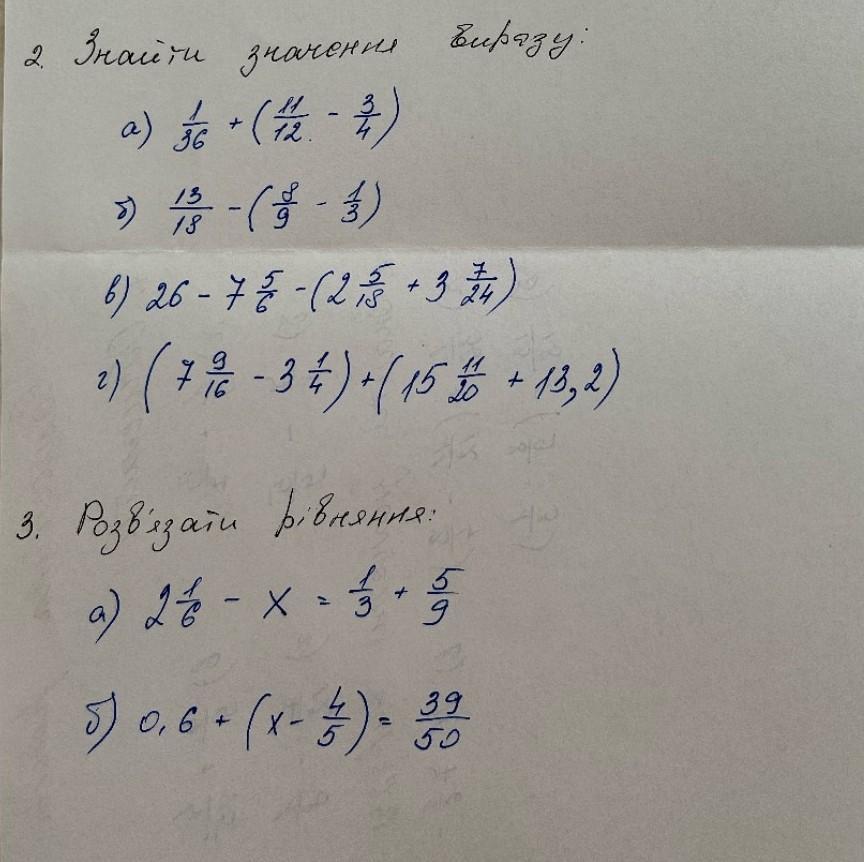 2. Знайти значення виразу:
а) 1/36 + (11/12 - 3/4)
б) 13/18 - (8/9 - 1/3)
в) 26 - 7 5/6 - (2 5/18 + 3 7/24)
г) (7 9/16 - 3 1/4) + (15 11/20 + 13,2)
3. Розв'язати рівняння:
а) 2 1/6 - x = 1/3 + 5/9
б) 0,6 + (x - 4/5) = 39/50